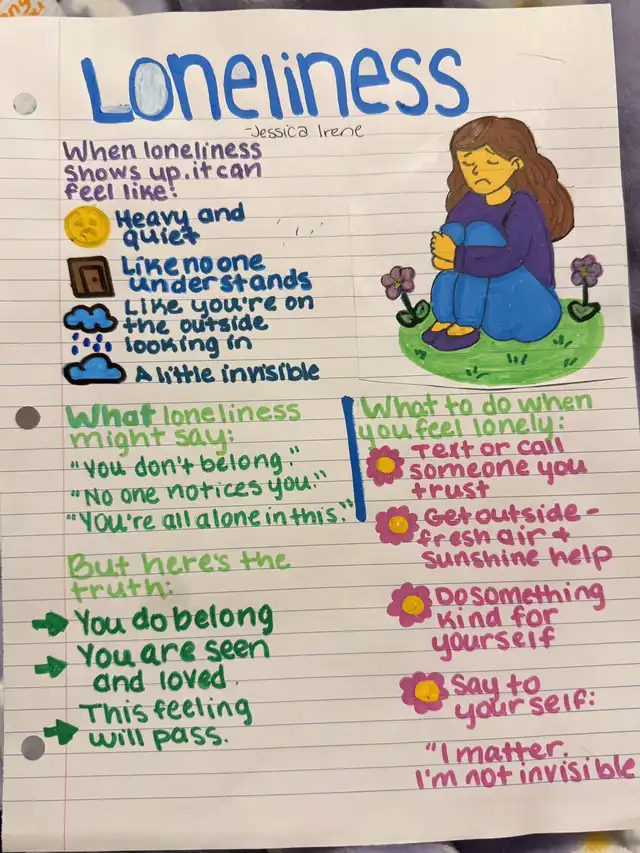 Loneliness
-Jessica Irene
When loneliness
shows up, it can
feel like:
Heavy and
quiet
Like no one
understands
Like you're on
the outside
looking in
A little invisible
What loneliness
might say:
"You don't belong."
"No one notices you."
"You're all alone in this."
But here's the
truth:
You do belong
You are seen
and loved.
This feeling
will pass.
What to do when
you feel lonely:
Text or call
someone you
trust
Get outside-
fresh air +
sunshine help
Do something
kind for
yourself
Say to
yourself:
"I matter.
I'm not invisible